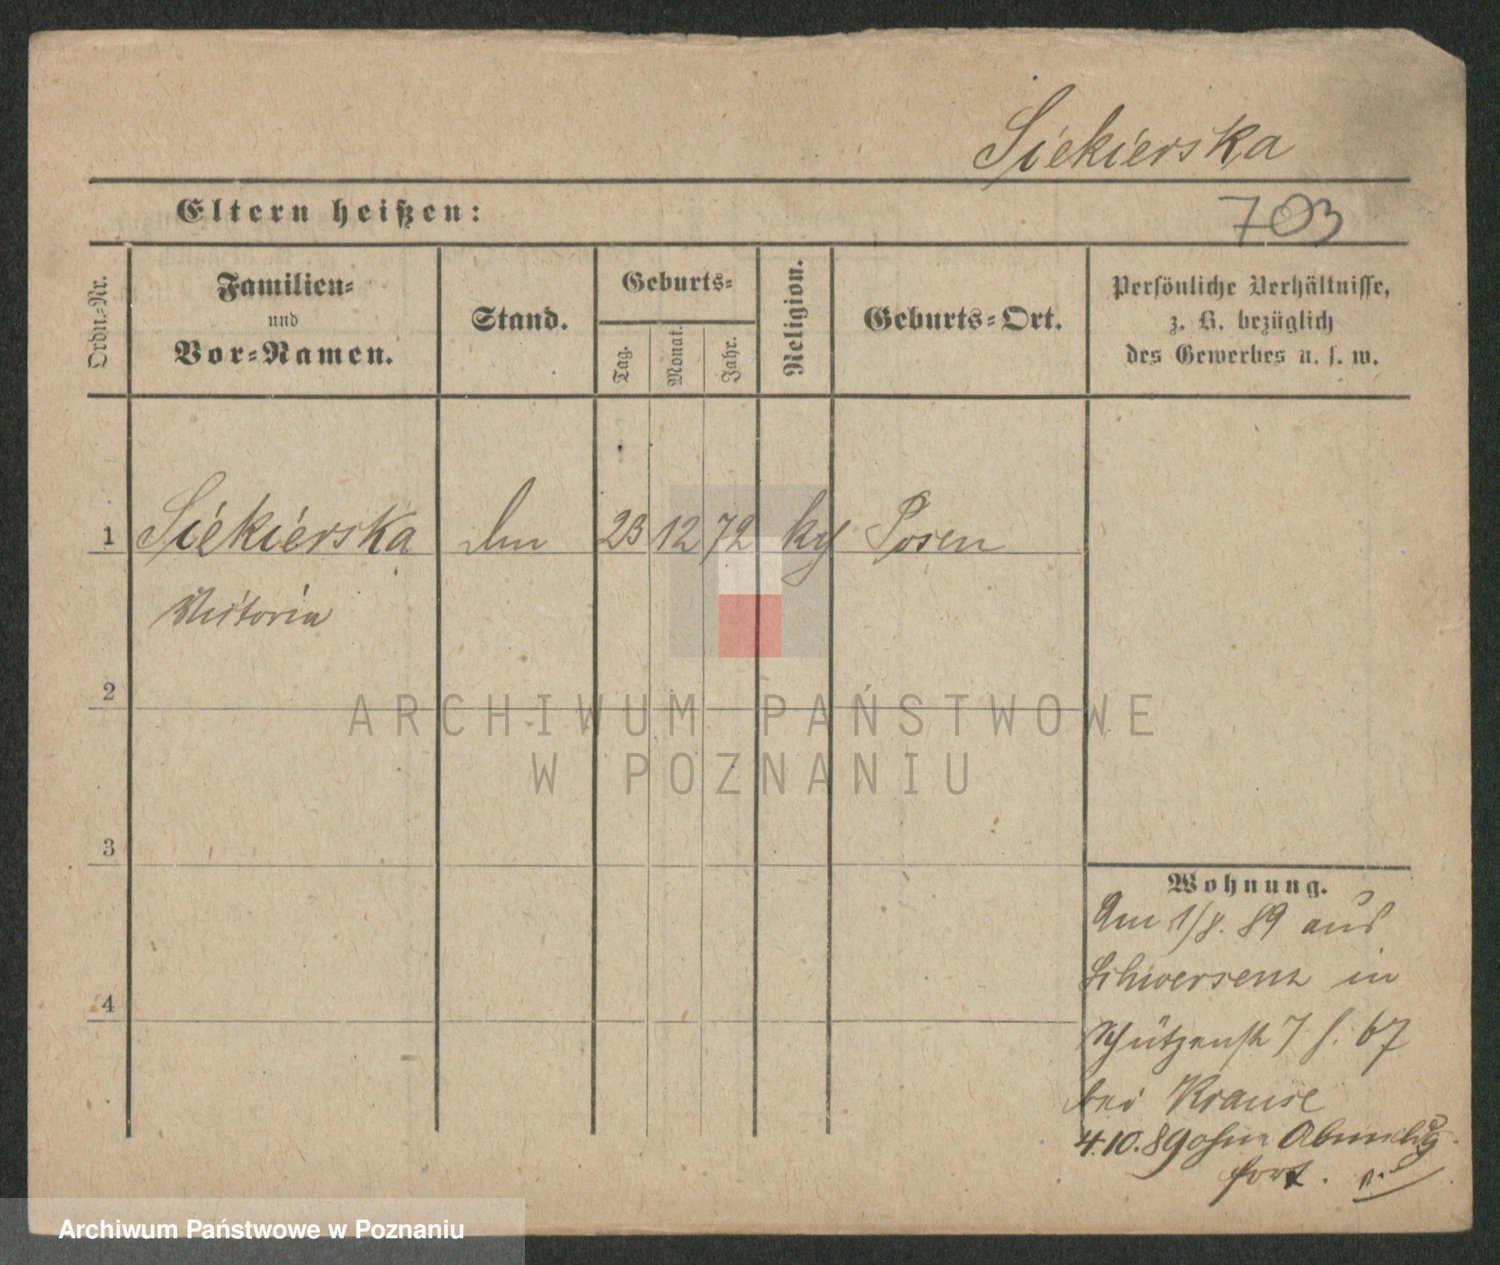 Siekierska
Eltern heißen:
703
Ordn.-Nr.
Familien-
und
Vor-Namen.
Stand.
Geburts-
Tag.
Monat.
Jahr.
Religion.
Geburts-Ort.
Persönliche Verhältnisse,
z. B. bezüglich
des Gewerbes u. s. w.
1 Siekierska 23 12 72 Posen
Victoria
2
3
4
Wohnung.
Am 1/8. 89 aus
Schwersenz in
Schützenstr 7 b. 67
bei Krause
4.10.89 ohne Abmeldg
fort.
ARCHIWUM PAŃSTWOWE
W POZNANIU
Archiwum Państwowe w Poznaniu